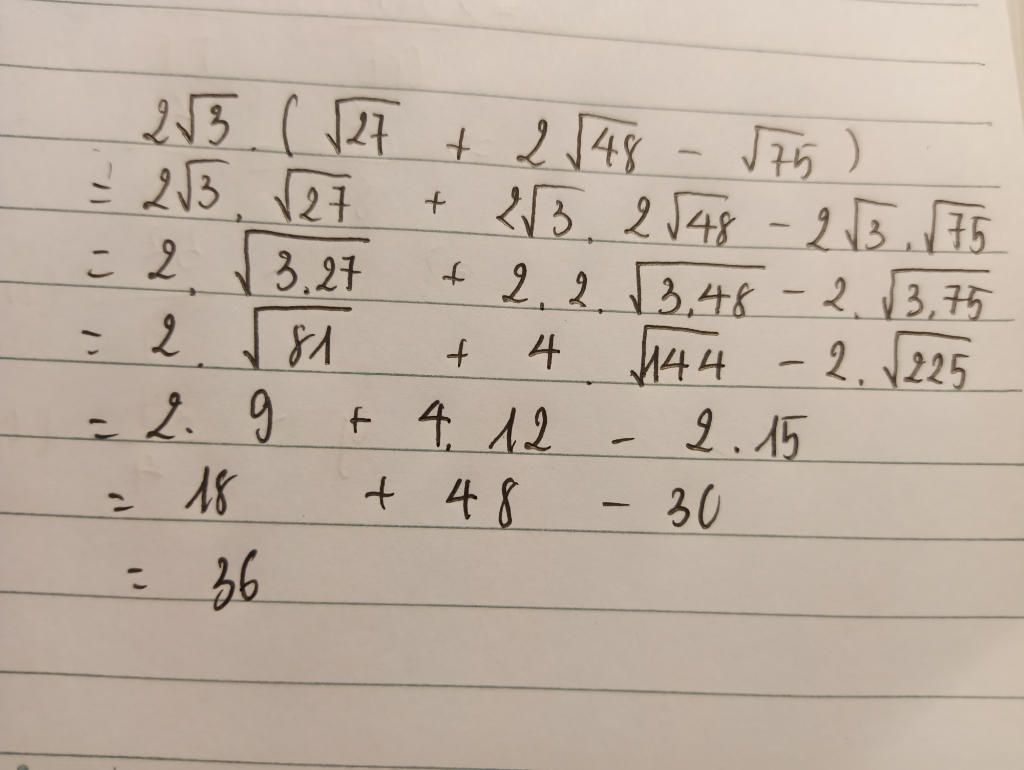 2√3 . ( √27 + 2√48 - √75 )
= 2√3 . √27 + 2√3 . 2√48 - 2√3 . √75
= 2 . √3.27 + 2 . 2 . √3.48 - 2 . √3.75
= 2 . √81 + 4 . √144 - 2 . √225
= 2 . 9 + 4 . 12 - 2 . 15
= 18 + 48 - 30
= 36